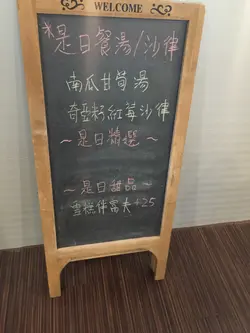 WELCOME
*是日餐湯/沙律
南瓜甘筍湯
奇亞籽紅莓沙律
~是日精選~
~是日甜品~
雪糕伴窩夫+25